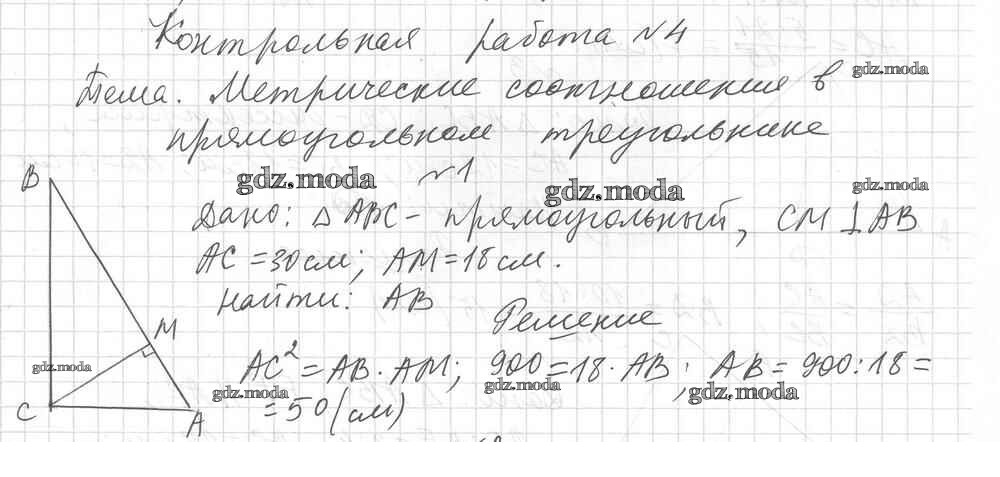 Контрольная работа №4
Тема. Метрические соотношения в
gdz.moda
прямоугольном треугольнике
B
gdz.moda
№1
gdz.moda
gdz.moda
Дано: △ABC - прямоугольный, CM ⊥ AB
AC = 30 см; AM = 18 см.
Найти: AB
Решение
M
gdz.moda
AC² = AB · AM; 900 = 18 · AB; AB = 900 : 18 =
gdz.moda
gdz.moda
gdz.moda
= 50 (см)
C
A